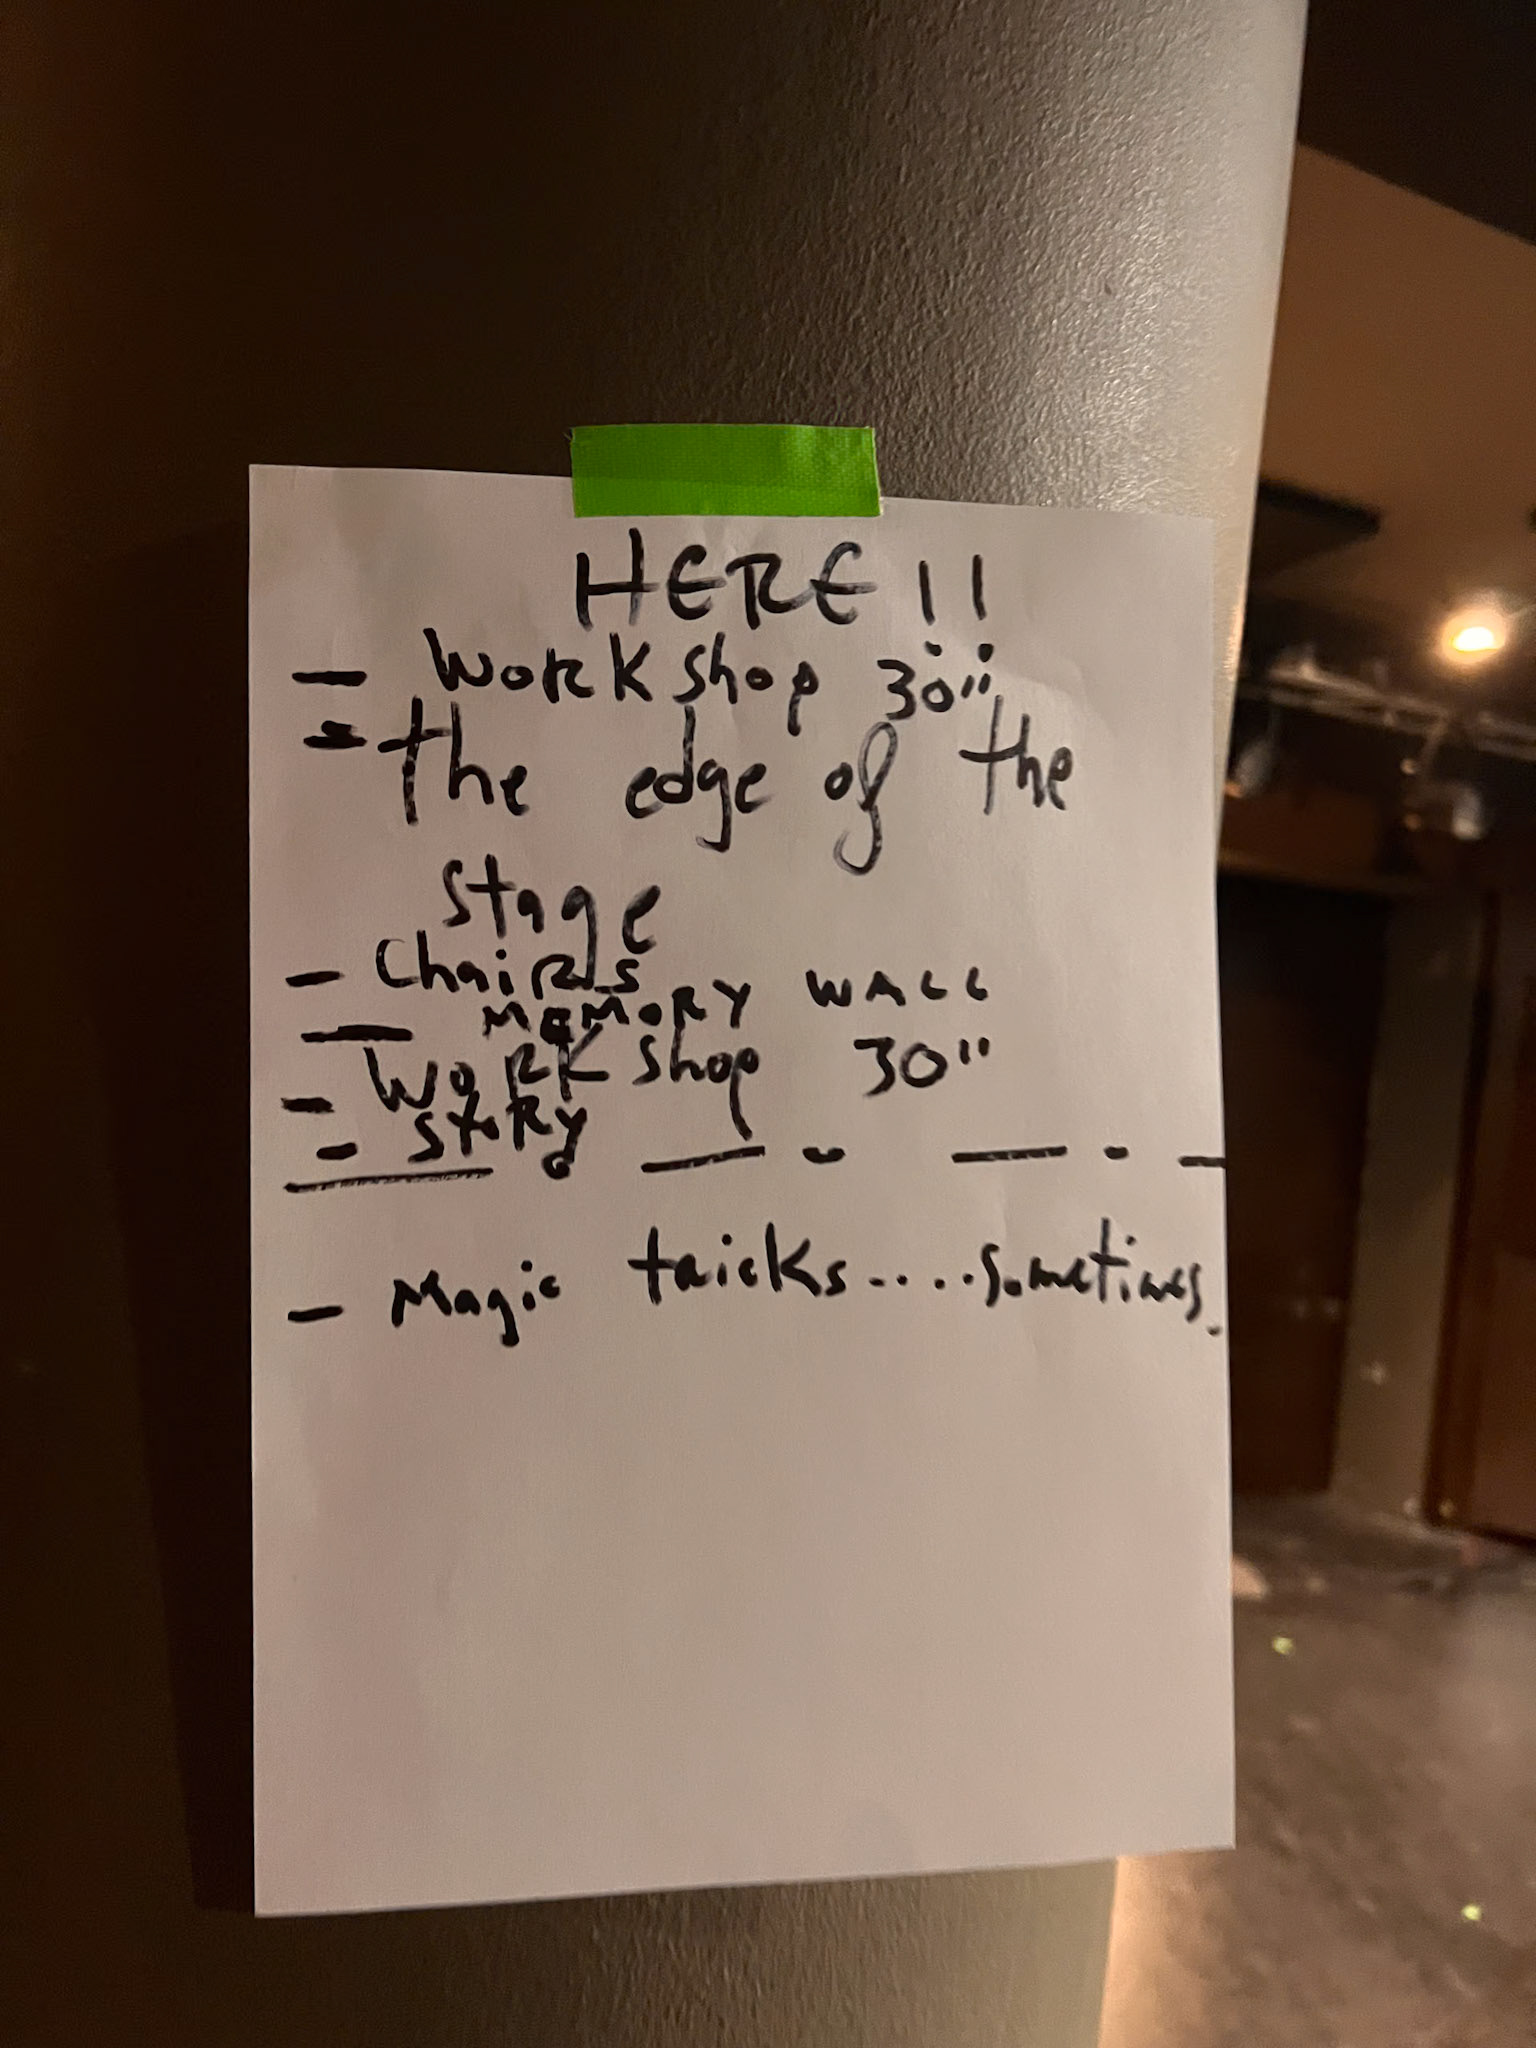 HERE!!
- Workshop 30"
- the edge of the
stage
- Chairs
- MEMORY WALL
- Workshop 30"
- STORY
- Magic tricks.....sometimes.